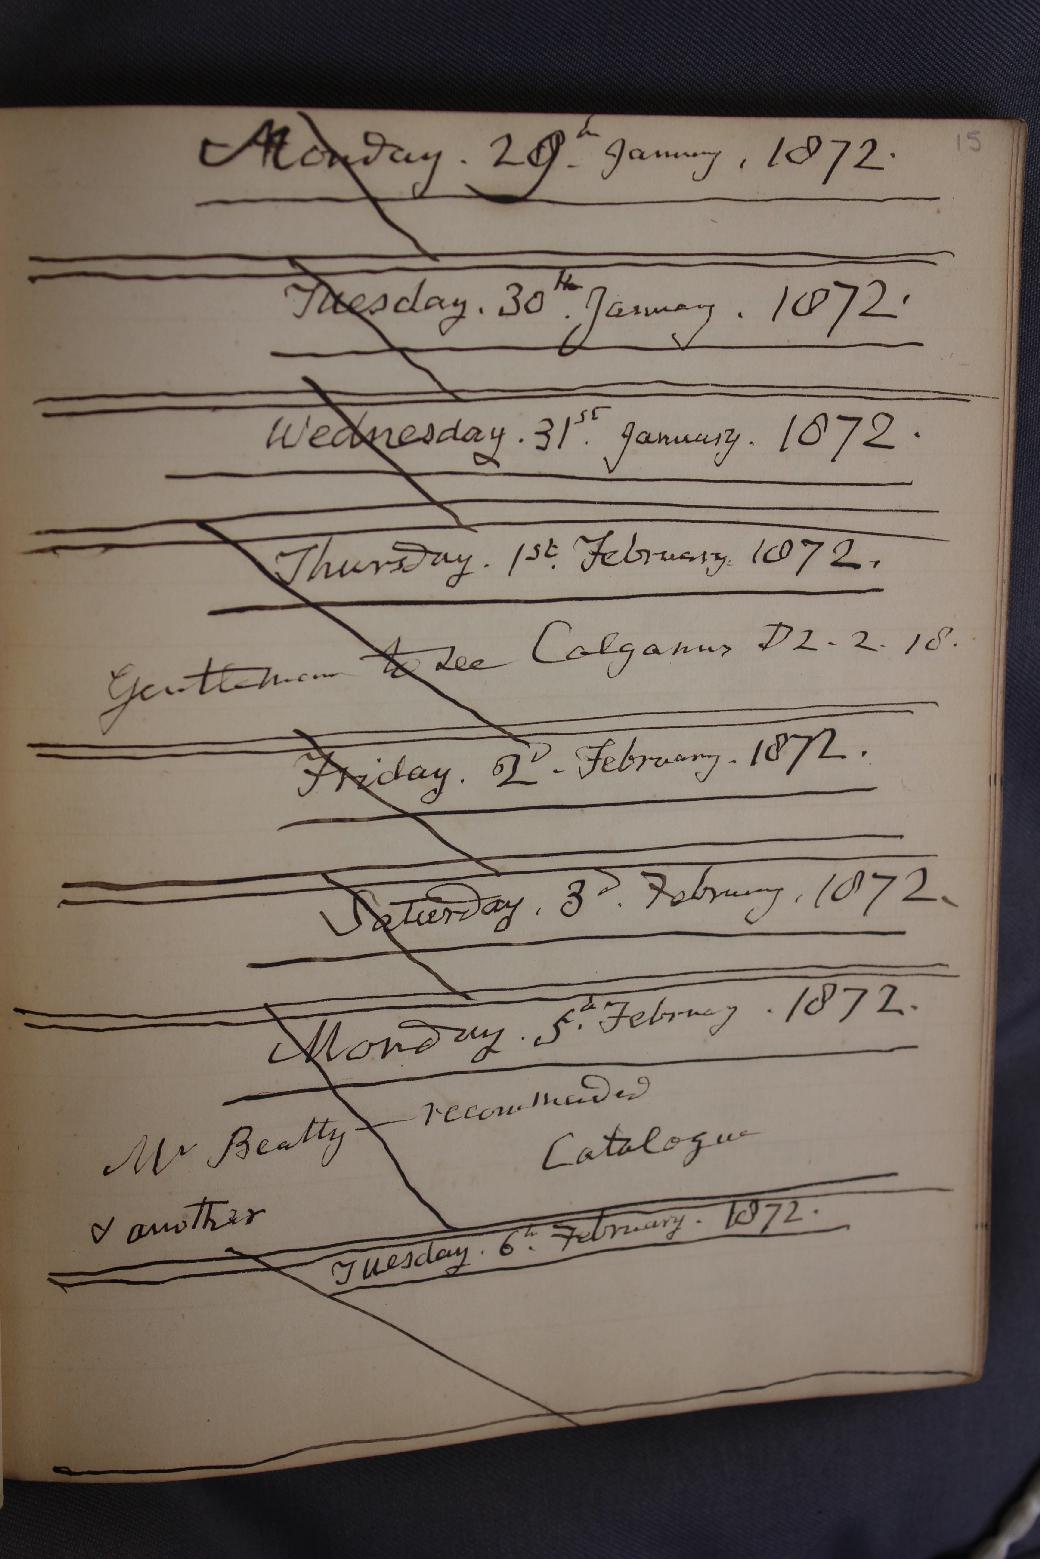 15
Monday. 29th January, 1872.
Tuesday. 30th. January. 1872.
Wednesday. 31st. January. 1872.
Thursday. 1st. February. 1872.
Gentleman to see Colganus D2-2.18.
Friday. 2d. February. 1872.
Saturday. 3d. February. 1872.
Monday. 5th. February. 1872.
Mr Beatty — recommended
Catalogue
& another
Tuesday. 6th. February. 1872.